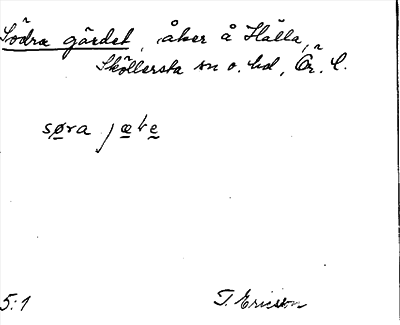 Södra gärdet, åker å Hälla,
Sköllersta sn o. hd, Ör. l.
søra
5:1 T. Ericson